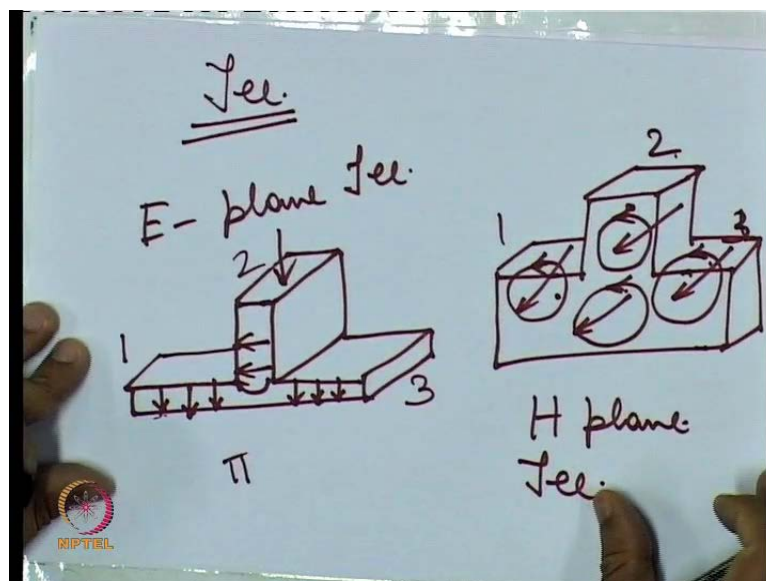 Tee.
E- plane Tee.
2
1
3
π
1
2.
3
H plane
Tee.
NPTEL